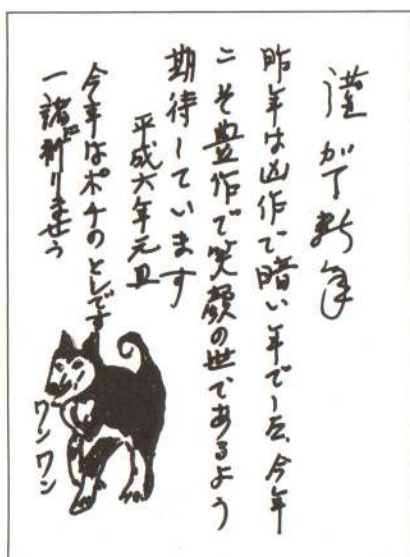 謹ガ下新年
昨年は凶作で暗い年でした、今年
こそ豊作で笑顔の世であるよう
期待しています
平成六年元旦
今年はポチのとしです
一諸に祈りませう
ワンワン